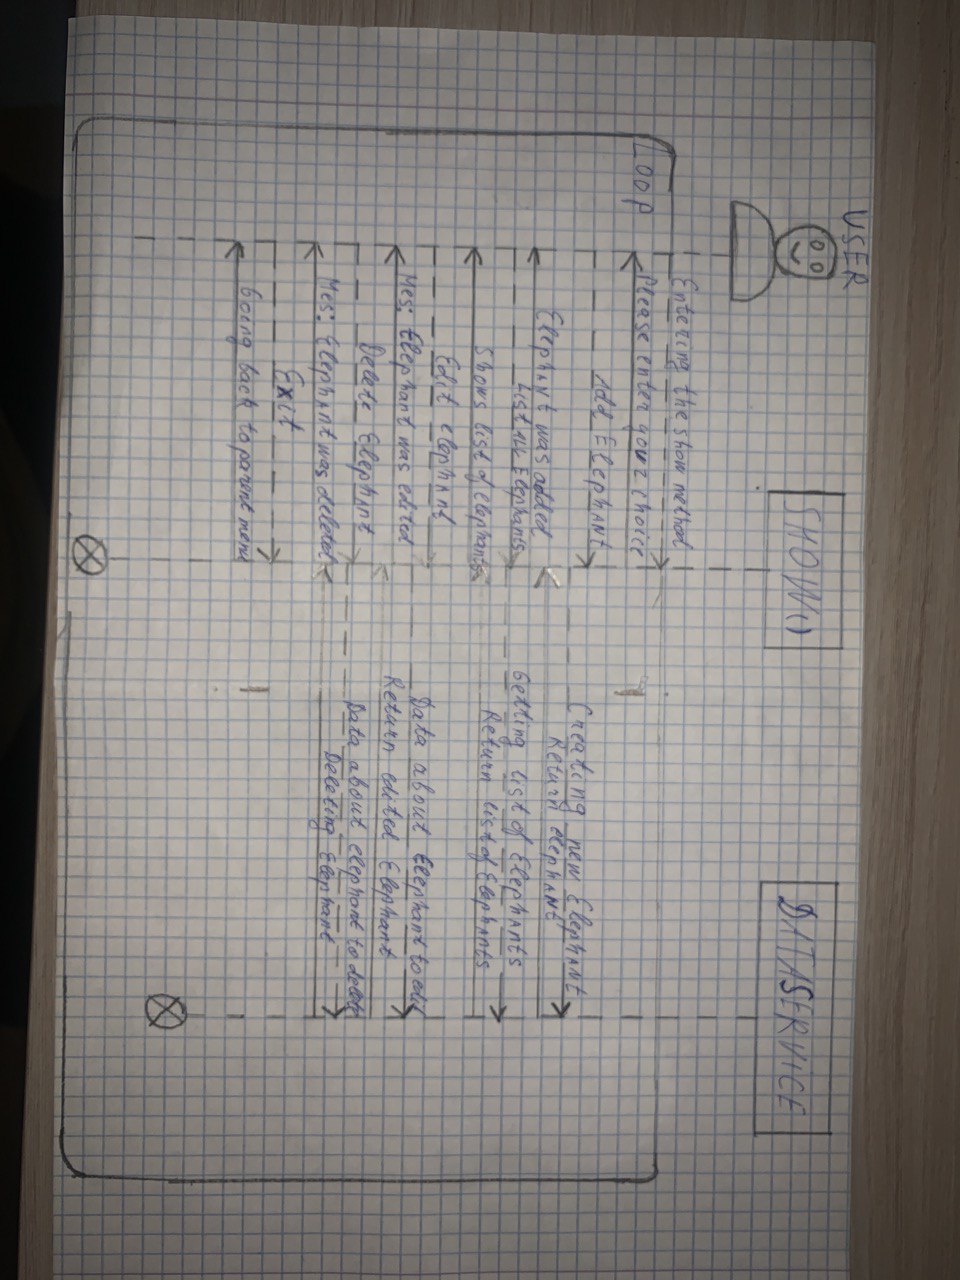 USER
SHOW()
DATASERVICE
Entering the show method
Loop
Please enter your choice
Add Elephant
Creating new Elephant
Return elephant
Elephant was added
List all Elephants
Getting list of Elephants
Return list of Elephants
Shows list of elephants
Edit elephant
Data about Elephant to edit
Mes: Elephant was edited
Return edited Elephant
Delete Elephant
Data about elephant to delete
Mes: Elephant was deleted
Deleting Elephant
Exit
Going back to parent menu